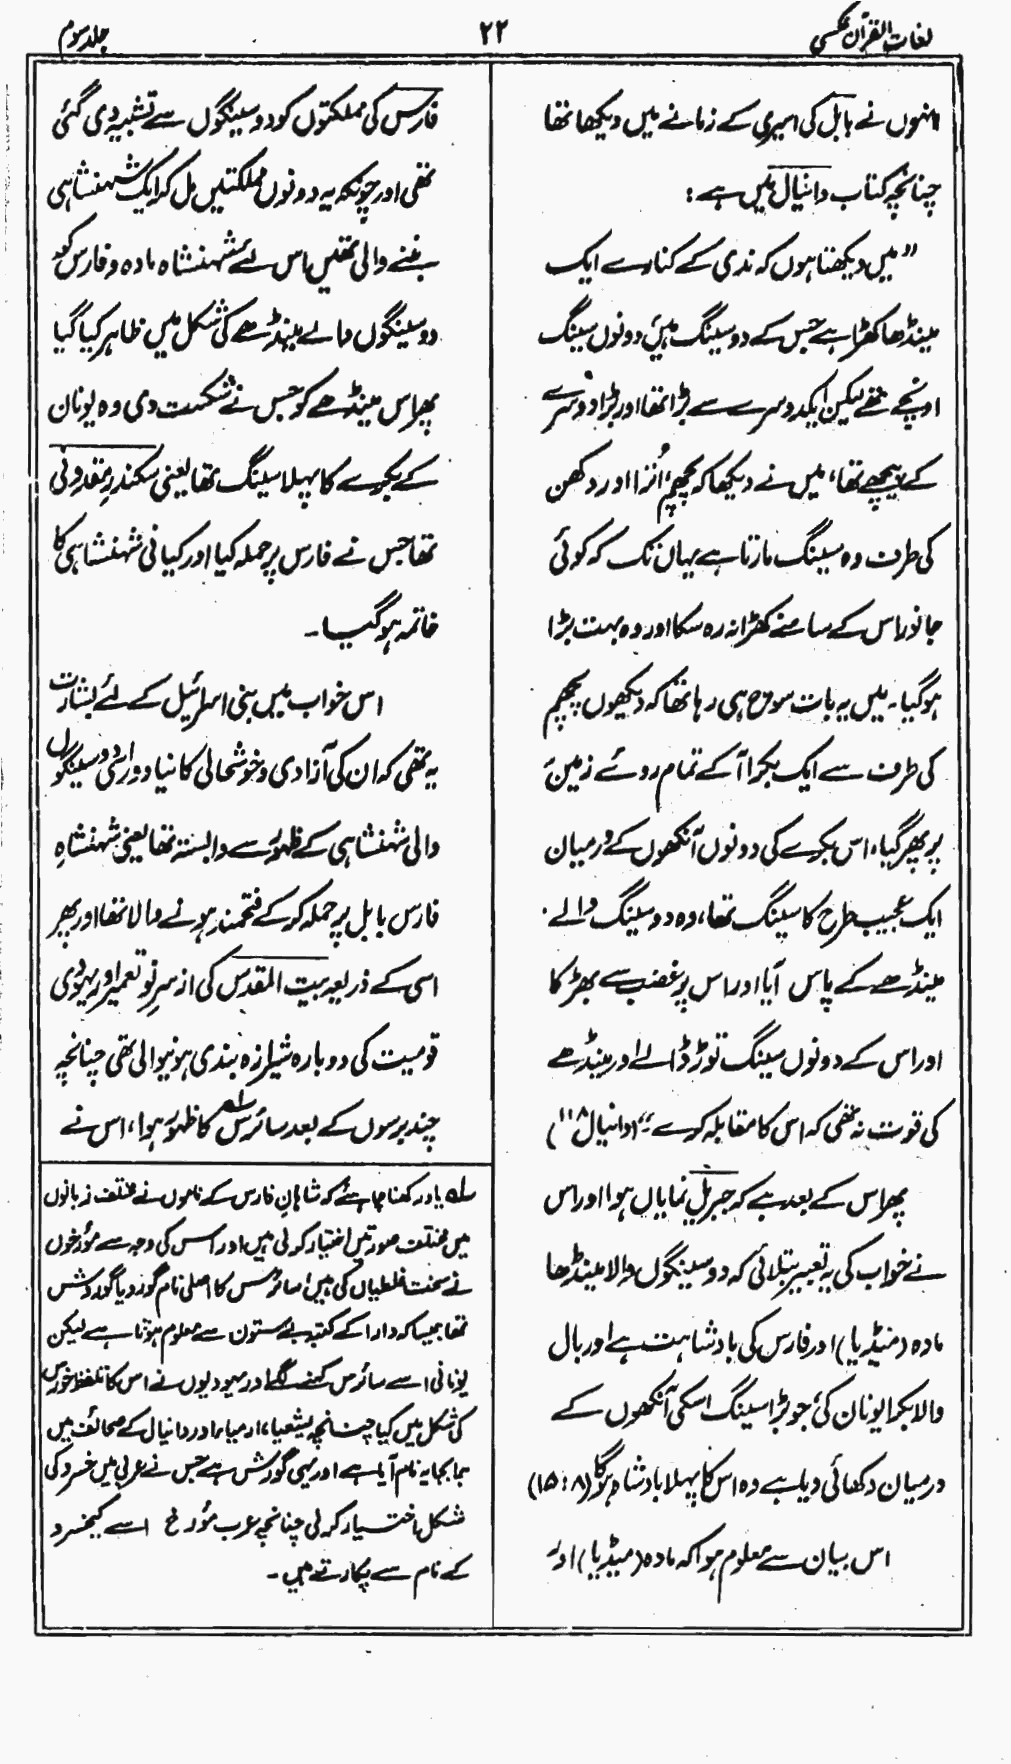 لغات القرآن عکسی
۲۲
جلد سوم
انہوں نے بابل کی اسیری کے زمانے میں دیکھا تھا
چنانچہ کتاب دانیال میں ہے :
”میں دیکھتا ہوں کہ ندی کے کنارے ایک
مینڈھا کھڑا ہے جس کے دو سینگ ہیں، دونوں سینگ
اونچے تھے لیکن ایک دوسرے سے بڑا تھا اور بڑا دوسرے
کے پیچھے تھا، میں نے دیکھا کہ پچھم، اُترا اور دکھن
کی طرف وہ سینگ مارتا ہے یہاں تک کہ کوئی
جانور اس کے سامنے کھڑا نہ رہ سکا اور وہ بہت بڑا
ہوگیا۔ میں یہ بات سوچ ہی رہا تھا کہ دیکھوں پچھم
کی طرف سے ایک بکرا آکے تمام روئے زمین
پر پھر گیا، اس بکرے کی دونوں آنکھوں کے درمیان
ایک عجیب طرح کا سینگ تھا، وہ دو سینگ والے
مینڈھے کے پاس آیا اور اس پر غضب سے بھڑکا
اور اس کے دونوں سینگ توڑ ڈالے اور مینڈھے
کی قوت نہ تھی کہ اس کا مقابلہ کرے“ (دانیال ۱۱۸)
پھر اس کے بعد ہے کہ جبریل نمایاں ہوا اور اس
نے خواب کی یہ تعبیر بتلائی کہ دو سینگوں والا مینڈھا
مادہ (میڈیا) اور فارس کی بادشاہت ہے اور بال
والا بکرا یونان کی، جو بڑا سینگ اسکی آنکھوں کے
درمیان دکھائی دیا ہے وہ اس کا پہلا بادشاہ ہوگا (۸ : ۱۵)
اس بیان سے معلوم ہوا کہ مادہ (میڈیا) اور
فارس کی مملکتوں کو دو سینگوں سے تشبیہ دی گئی
تھی اور چونکہ یہ دونوں مملکتیں مل کر ایک شہنشاہی
بننے والی تھیں اس لئے شہنشاہ مادہ و فارس کو
دو سینگوں والے مینڈھے کی شکل میں ظاہر کیا گیا
پھر اس مینڈھے کو جس نے شکست دی وہ یونان
کے بکرے کا پہلا سینگ تھا یعنی سکندر مقدونی
تھا جس نے فارس پر حملہ کیا اور کیانی شہنشاہی کا
خاتمہ ہوگیا۔
اس خواب میں بنی اسرائیل کے لئے بشارت
یہ تھی کہ ان کی آزادی و خوشحالی کا نیا دور اسی دو سینگوں
والی شہنشاہی کے ظہور سے وابستہ تھا یعنی شہنشاہِ
فارس بابل پر حملہ کرکے فتحمند ہونے والا تھا اور پھر
اسی کے ذریعہ بیت المقدس کی از سرِ نو تعمیر اور یہودی
قومیت کی دوبارہ شیرازہ بندی ہونیوالی تھی چنانچہ
چند برسوں کے بعد سائرس لہ کا ظہور ہوا، اس نے
لہ یاد رکھنا چاہئے کہ شاہانِ فارس کے ناموں نے مختلف زبانوں
میں مختلف صورتیں اختیار کرلی ہیں اور اسس کی وجہ سے مؤرخوں
نے سخت غلطیاں کی ہیں، سائرسس کا اصلی نام گورو یا گوروش
تھا جیسا کہ دارا کے کتبہ بے ستون سے معلوم ہوتا ہے لیکن
یونانی اسے سائرس کہنے لگے اور یہودیوں نے اس کا تلفظ خورس
کی شکل میں کیا چنانچہ یشعیا، ارمیاہ اور دانیال کے صحائف میں
جابجا یہ نام آیا ہے اور یہی گورش ہے جس نے عربی میں خسرو کی
شکل اختیار کرلی چنانچہ عرب مؤرخ اسے کیخسرو
کے نام سے پکارتے ہیں۔